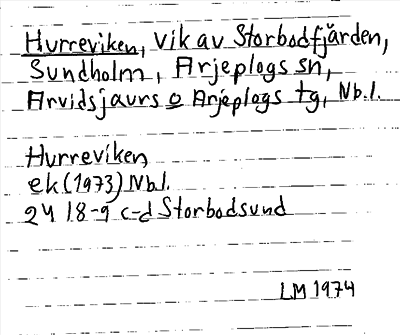 Hurreviken, vik av Storbodfjärden,
Sundholm, Arjeplogs sn,
Arvidsjaurs o Arjeplogs tg, Nb.l.
Hurreviken
ek (1973) Nbl.
24 I 8-9 c-d Storbodsund
LM 1974